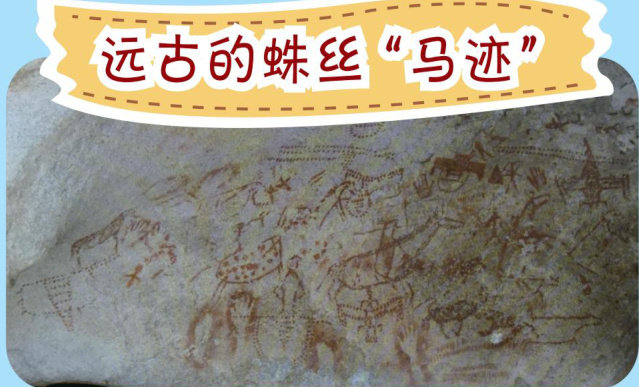 远古的蛛丝“马迹”